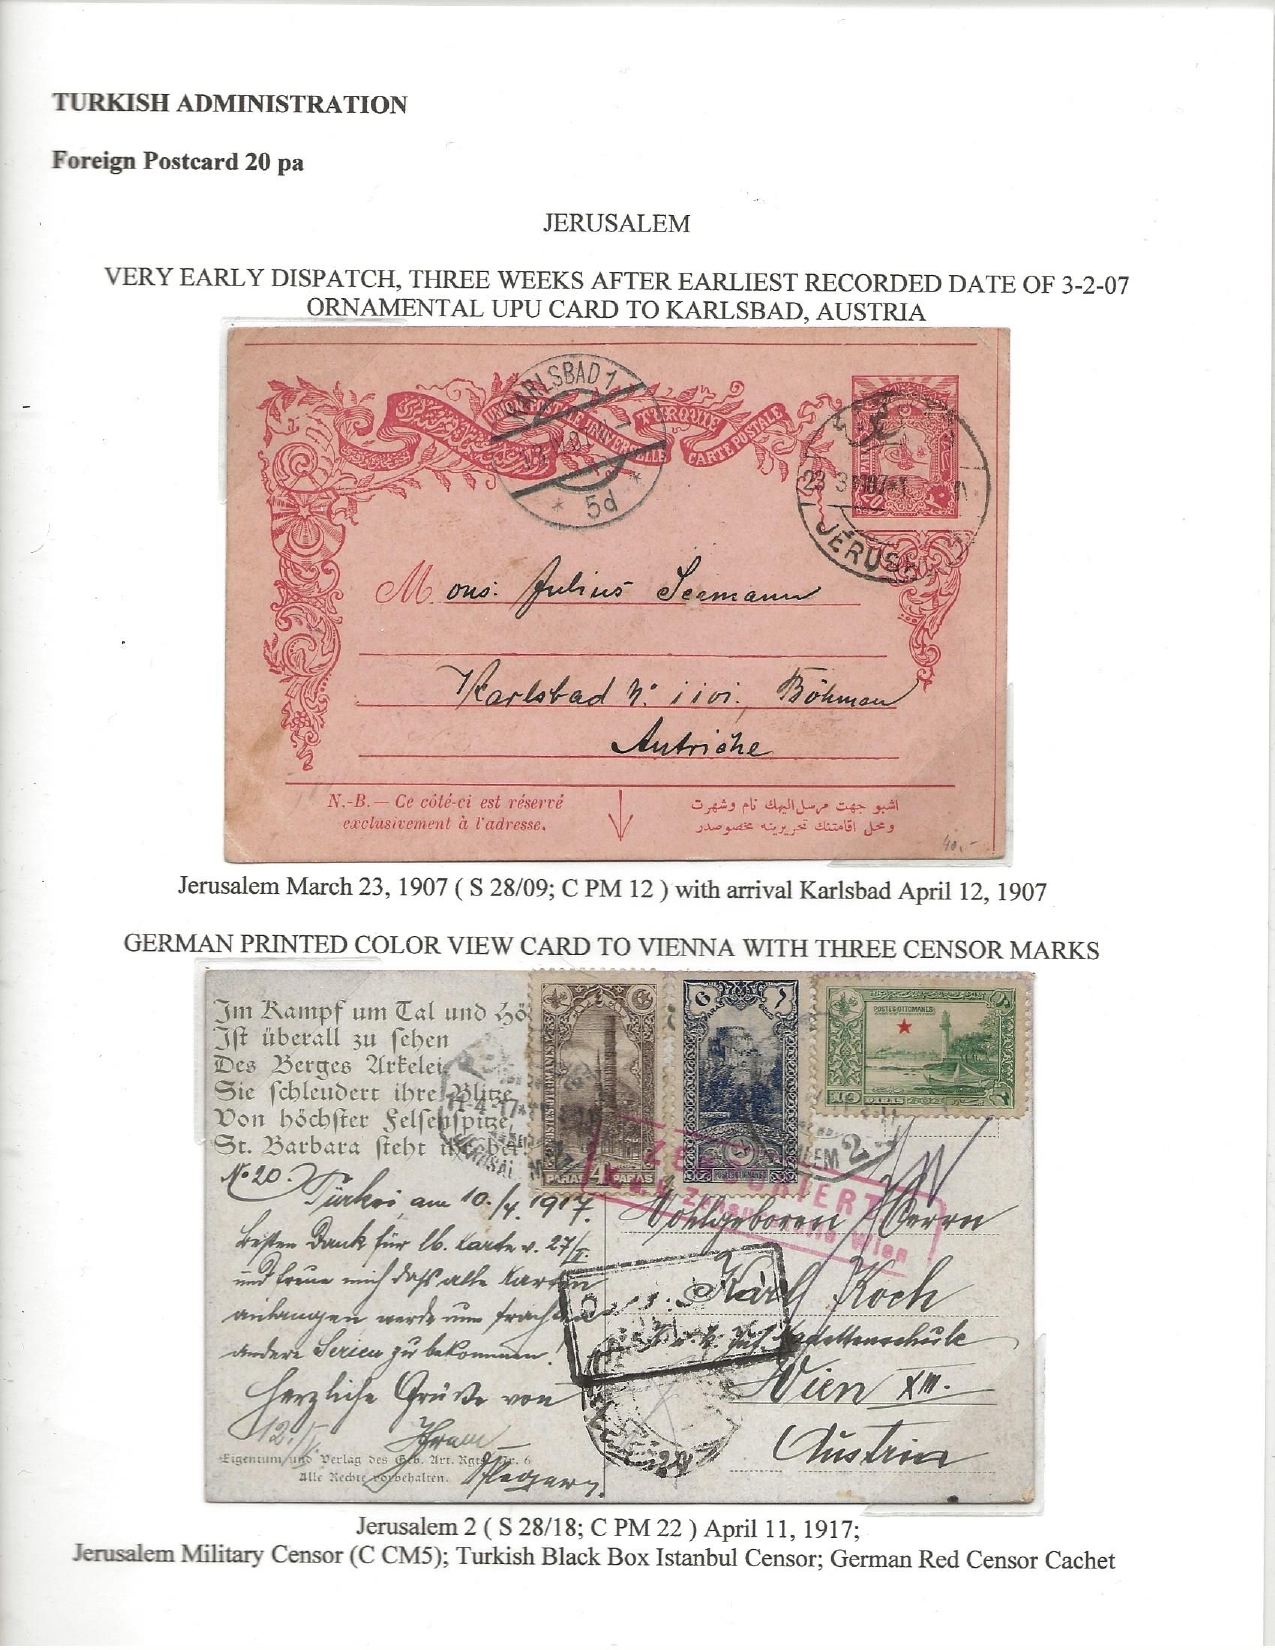 TURKISH ADMINISTRATION
Foreign Postcard 20 pa
JERUSALEM
VERY EARLY DISPATCH, THREE WEEKS AFTER EARLIEST RECORDED DATE OF 3-2-07
ORNAMENTAL UPU CARD TO KARLSBAD, AUSTRIA
KARLSBAD 1
TURQUIE
CARTE POSTALE
* 5d *
23
JERUSA
Mons: Julius Seemann
Karlsbad
Autriche
N.-B. — Ce côté-ci est réservé
exclusivement à l'adresse.
اشبو جهت مرسل اليهك نام وشهرت
ومحل اقامتنك تحريرينه مخصوصدر
40.-
Jerusalem March 23, 1907 ( S 28/09; C PM 12 ) with arrival Karlsbad April 12, 1907
GERMAN PRINTED COLOR VIEW CARD TO VIENNA WITH THREE CENSOR MARKS
Im Kampf um Tal und Hö
Ist überall zu sehen
Des Berges Artelei
Sie schleudert ihre Blitze
Von höchster Felsenspitze,
St. Barbara steht
POSTES OTTOMANES
6
PARAS
10
PARAS 4 PARAS
11-4-17
2
No 20.
Türkei, am 10./4. 1917.
besten Dank für lb. Karte v. 27/
und freue mich daß alle Karten
andere Serien zu bekommen!
Herzliche Grüße von
ZENSURIERT
Wien
Wohlgeboren Herrn
Karl Koch
Wien XIII.
Austria
Eigentum und Verlag des Geb. Art. Rgts. Nr. 6
Alle Rechte vorbehalten.
Jerusalem 2 ( S 28/18; C PM 22 ) April 11, 1917;
Jerusalem Military Censor (C CM5); Turkish Black Box Istanbul Censor; German Red Censor Cachet